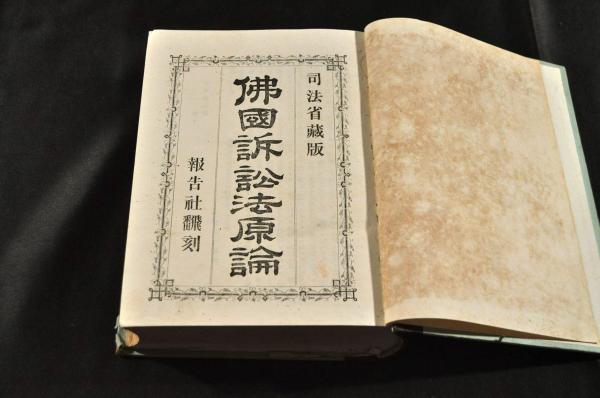 司法省藏版
佛國訴訟法原論
報告社飜刻